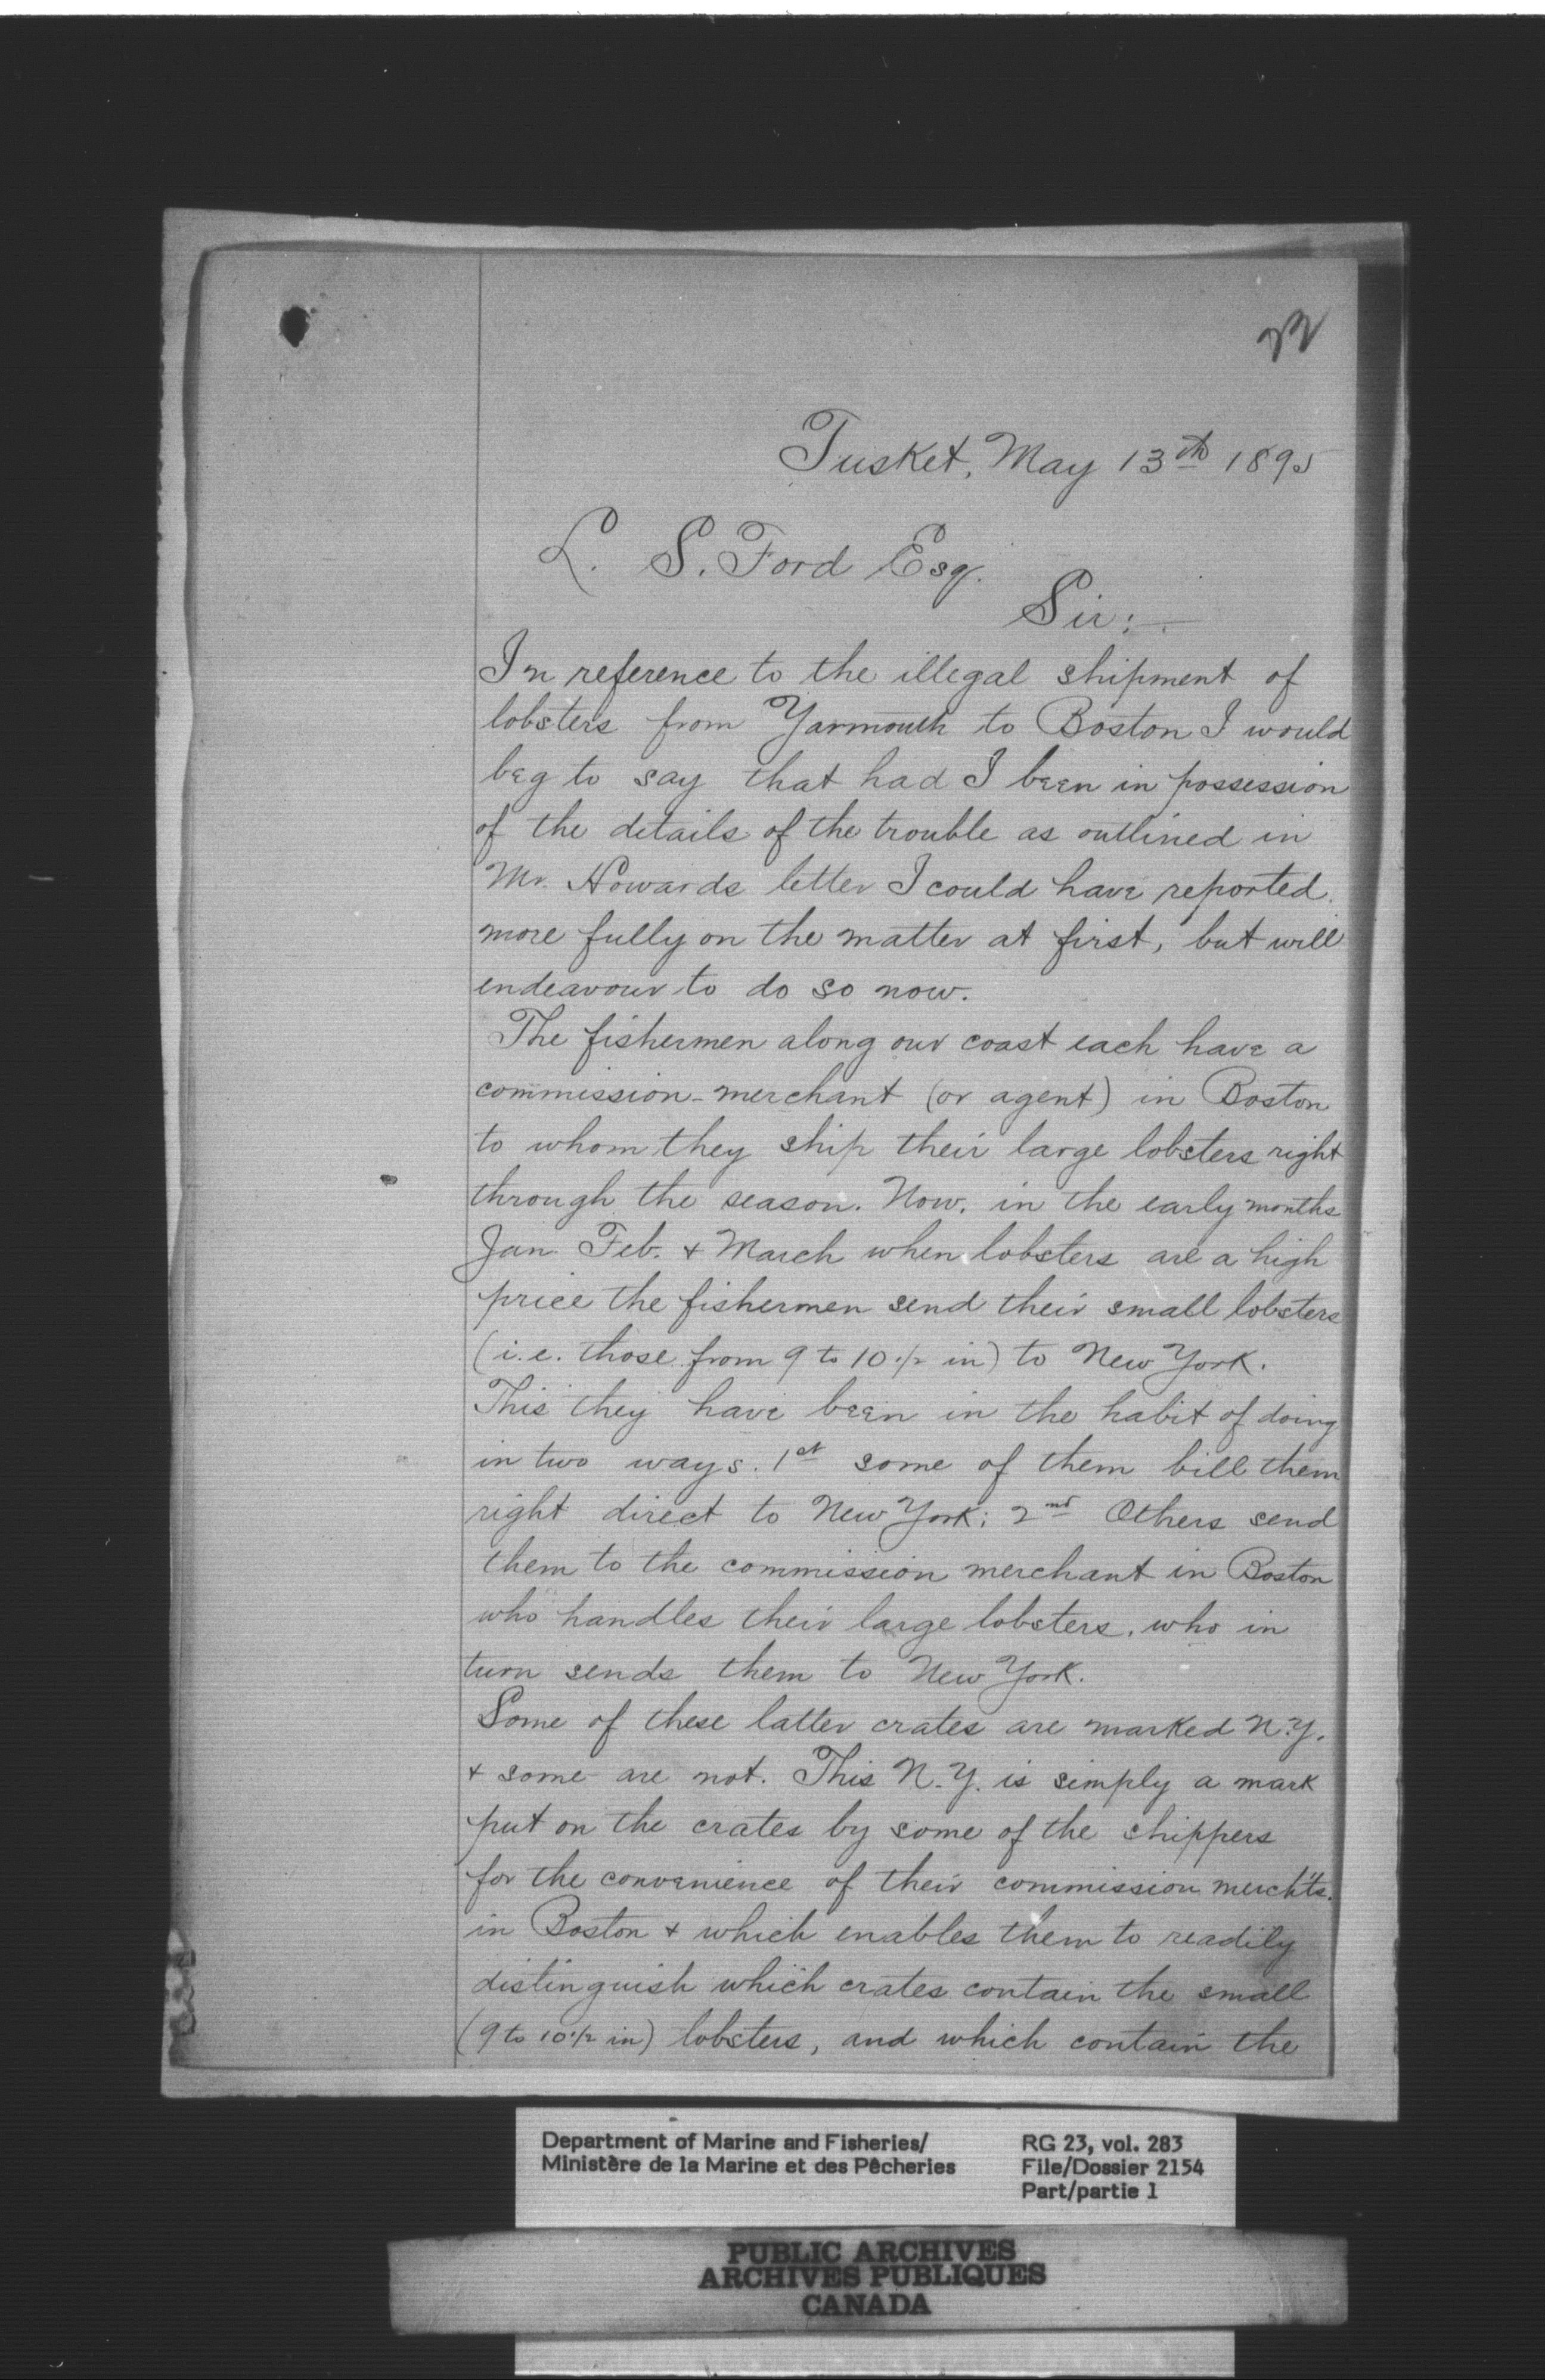 Tusket, May 13th 1895
L. S. Ford Esq.
Sir:-
In reference to the illegal shipment of
lobsters from Yarmouth to Boston I would
beg to say that had I been in possession
of the details of the trouble as outlined in
Mr. Howards letter I could have reported
more fully on the matter at first, but will
endeavour to do so now.
The fishermen along our coast each have a
commission-merchant (or agent) in Boston
to whom they ship their large lobsters right
through the season. Now, in the early months
Jan. Feb. & March when lobsters are a high
price the fishermen send their small lobsters
(i.e. those from 9 to 10 1/2 in) to New York.
This they have been in the habit of doing
in two ways. 1st some of them bill them
right direct to New York; 2nd Others send
them to the commission merchant in Boston
who handles their large lobsters, who in
turn sends them to New York.
Some of these latter crates are marked N.Y.
& some are not. This N.Y. is simply a mark
put on the crates by some of the shippers
for the convenience of their commission mercht's.
in Boston & which enables them to readily
distinguish which crates contain the small
(9 to 10 1/2 in) lobsters, and which contain the
Department of Marine and Fisheries/
Ministère de la Marine et des Pêcheries
RG 23, vol. 283
File/Dossier 2154
Part/partie 1
PUBLIC ARCHIVES
ARCHIVES PUBLIQUES
CANADA